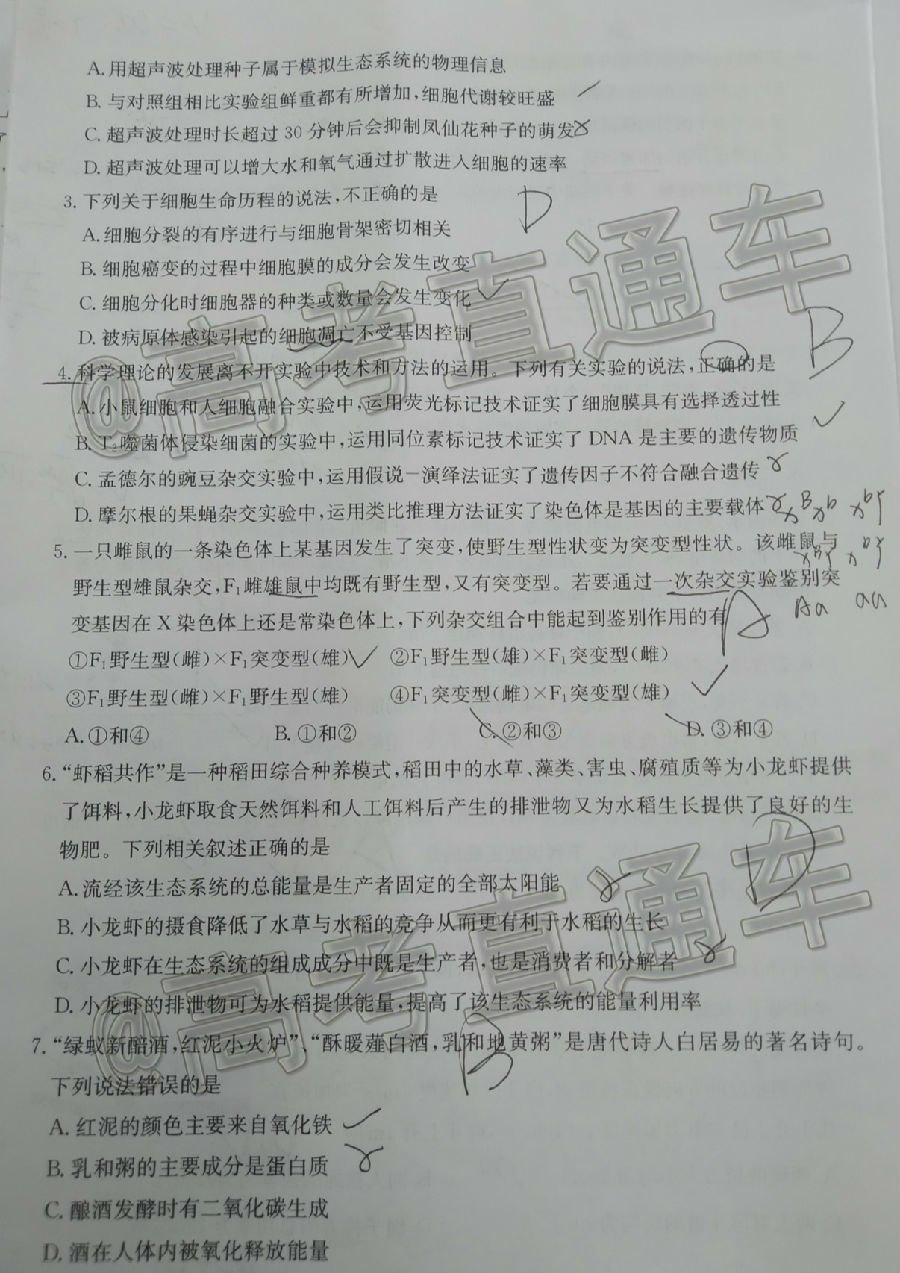 A.用超声波处理种子属于模拟生态系统的物理信息
B.与对照组相比实验组鲜重都有所增加,细胞代谢较旺盛
C.超声波处理时长超过30分钟后会抑制凤仙花种子的萌发
D.超声波处理可以增大水和氧气通过扩散进入细胞的速率
3.下列关于细胞生命历程的说法,不正确的是 D
A.细胞分裂的有序进行与细胞骨架密切相关
B.细胞癌变的过程中细胞膜的成分会发生改变
C.细胞分化时细胞器的种类或数量会发生变化
D.被病原体感染引起的细胞凋亡不受基因控制
B
4.科学理论的发展离不开实验中技术和方法的运用。下列有关实验的说法,正确的是
A.小鼠细胞和人细胞融合实验中,运用荧光标记技术证实了细胞膜具有选择透过性
B.T₂噬菌体侵染细菌的实验中,运用同位素标记技术证实了DNA是主要的遗传物质
C.孟德尔的豌豆杂交实验中,运用假说-演绎法证实了遗传因子不符合融合遗传
D.摩尔根的果蝇杂交实验中,运用类比推理方法证实了染色体是基因的主要载体
5.一只雌鼠的一条染色体上某基因发生了突变,使野生型性状变为突变型性状。该雌鼠与
野生型雄鼠杂交,F₁雌雄鼠中均既有野生型,又有突变型。若要通过一次杂交实验鉴别突
变基因在X染色体上还是常染色体上,下列杂交组合中能起到鉴别作用的有 A Aa aa
①F₁野生型(雌)×F₁突变型(雄) ②F₁野生型(雄)×F₁突变型(雌)
③F₁野生型(雌)×F₁野生型(雄) ④F₁突变型(雌)×F₁突变型(雄)
A.①和④ B.①和② C.②和③ D.③和④
6.“虾稻共作”是一种稻田综合种养模式,稻田中的水草、藻类、害虫、腐殖质等为小龙虾提供
了饵料,小龙虾取食天然饵料和人工饵料后产生的排泄物又为水稻生长提供了良好的生
物肥。下列相关叙述正确的是 D
A.流经该生态系统的总能量是生产者固定的全部太阳能
B.小龙虾的摄食降低了水草与水稻的竞争从而更有利于水稻的生长
C.小龙虾在生态系统的组成成分中既是生产者,也是消费者和分解者
D.小龙虾的排泄物可为水稻提供能量,提高了该生态系统的能量利用率
7.“绿蚁新醅酒,红泥小火炉”、“酥暖薤白酒,乳和地黄粥”是唐代诗人白居易的著名诗句。
下列说法错误的是 B
A.红泥的颜色主要来自氧化铁
B.乳和粥的主要成分是蛋白质
C.酿酒发酵时有二氧化碳生成
D.酒在人体内被氧化释放能量
@高考直通车
@高考直通车